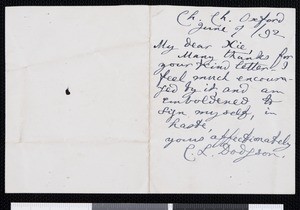 Ch. Ch. Oxford
June 9/92
My dear Xie,
Many thanks for
your kind letter. I
feel much encoura-
ged by it and am
emboldened to
sign myself, in
haste,
yours affectionately
C. L. Dodgson.